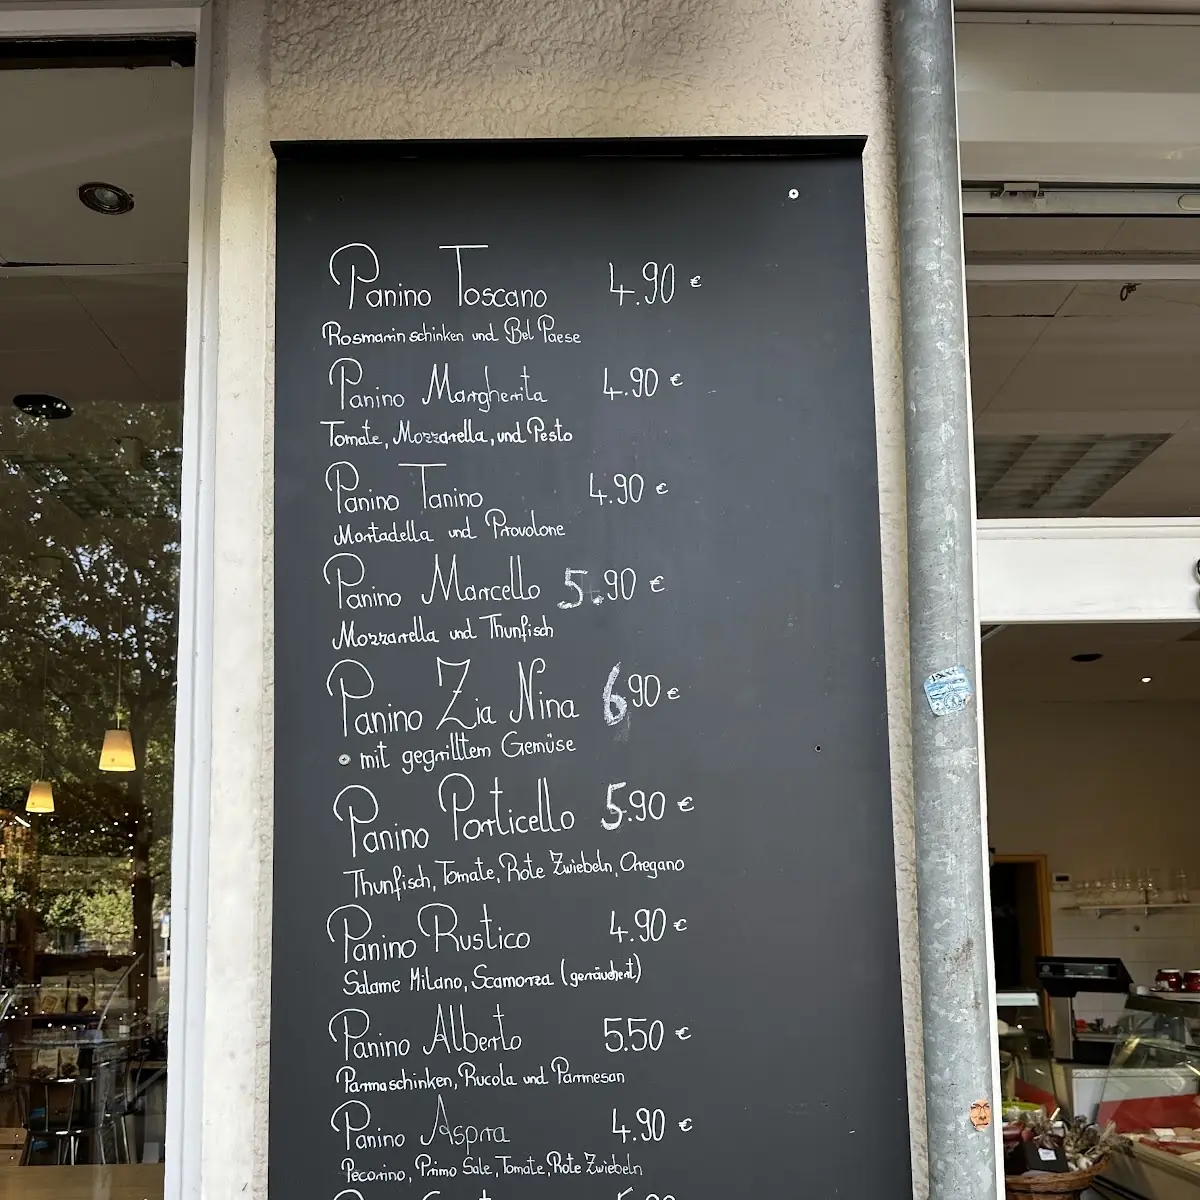 Panino Toscano 4.90 €
Rosmarinschinken und Bel Paese
Panino Margherita 4.90 €
Tomate, Mozzarella, und Pesto
Panino Tanino 4.90 €
Mortadella und Provolone
Panino Marcello 5.90 €
Mozzarella und Thunfisch
Panino Zia Nina 6.90 €
mit gegrilltem Gemüse
Panino Porticello 5.90 €
Thunfisch, Tomate, Rote Zwiebeln, Oregano
Panino Rustico 4.90 €
Salame Milano, Scamorza (geräuchert)
Panino Alberto 5.50 €
Parmaschinken, Rucola und Parmesan
Panino Aspra 4.90 €
Pecorino, Primo Sale, Tomate, Rote Zwiebeln